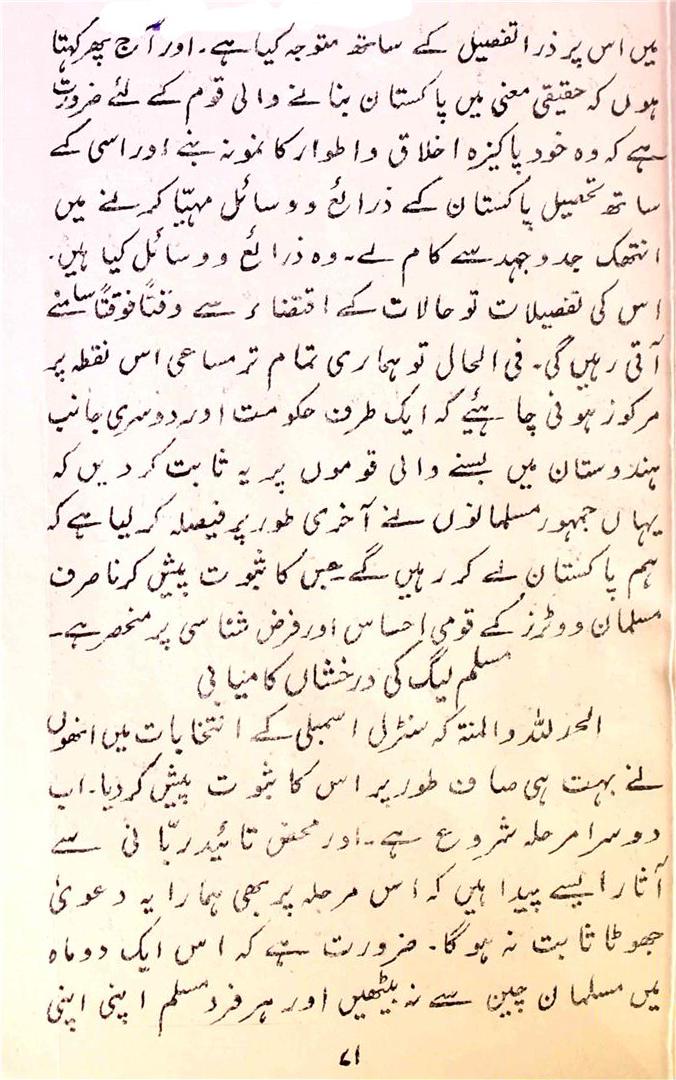 میں اس پر ذرا تفصیل کے ساتھ متوجہ کیا ہے۔ اور آج پھر کہتا
ہوں کہ حقیقی معنی میں پاکستان بنانے والی قوم کے لئے ضرورت
ہے کہ وہ خود پاکیزہ اخلاق و اطوار کا نمونہ بنے اور اسی کے
ساتھ تحصیل پاکستان کے ذرائع و وسائل مہیّا کرنے میں
انتھک جدوجہد سے کام لے۔ وہ ذرائع و وسائل کیا ہیں۔
اس کی تفصیلات تو حالات کے اقتضاء سے وقتاً فوقتاً سامنے
آتی رہیں گی۔ فی الحال تو ہماری تمام تر مساعی اس نقطہ پر
مرکوز ہونی چاہئیے کہ ایک طرف حکومت اور دوسری جانب
ہندوستان میں بسنے والی قوموں پر یہ ثابت کر دیں کہ
یہاں جمہور مسلمانوں نے آخری طور پر فیصلہ کر لیا ہے کہ
ہم پاکستان لے کر رہیں گے۔ جس کا ثبوت پیش کرنا صرف
مسلمان ووٹرز کے قومی احساس اور فرض شناسی پر منحصر ہے۔
مسلم لیگ کی درخشاں کامیابی
الحمد للہ والمنۃ کہ سنٹرل اسمبلی کے انتخابات میں انھوں
نے بہت ہی صاف طور پر اس کا ثبوت پیش کر دیا۔ اب
دوسرا مرحلہ شروع ہے۔ اور محض تائید ربّانی سے
آثار ایسے پیدا ہیں کہ اس مرحلہ پر بھی ہمارا یہ دعویٰ
جھوٹا ثابت نہ ہوگا۔ ضرورت ہے کہ اس ایک دو ماہ
میں مسلمان چین سے نہ بیٹھیں اور ہر فرد مسلم اپنی اپنی
۷۱